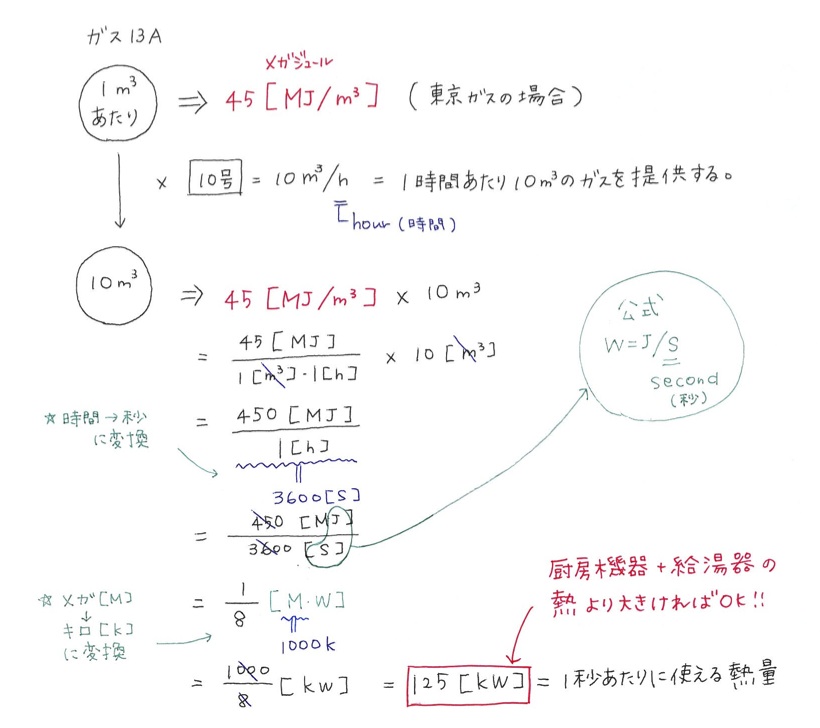 ガス13A
1m³
あたり
⇒ 45[MJ/m³] (東京ガスの場合)
メガジュール
× 10号 = 10m³/h = 1時間あたり10m³のガスを提供する。
hour(時間)
10m³
⇒ 45[MJ/m³] × 10m³
= 45[MJ] / 1[m³]・1[h] × 10[m³]
☆時間→秒
に変換
= 450[MJ] / 1[h]
3600[S]
= 450[MJ] / 3600[S]
公式
W=J/S
second
(秒)
☆メガ[M]
↓
キロ[k]
に変換
= 1/8 [M・W]
1000k
= 1000/8 [kW] = 125[kW] = 1秒あたりに使える熱量
厨房機器+給湯器の
熱より大きければOK!!